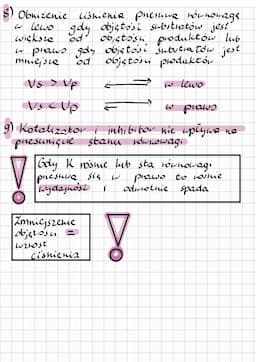 8) Obniżenie ciśnienia przesuwa równowagę
w lewo gdy objętość substratów jest
większa od objętości produktów lub
w prawo gdy objętość substratów jest
mniejsza od objętości produktów
Vs > Vp w lewo
Vs < Vp w prawo
9) Katalizator i inhibitor nie wpływa na
przesunięcie stanu równowagi
Gdy K rośnie lub sta równowagi
przesuwa się w prawo to rośnie
wydajność i odwrotnie spada
Zmniejszenie
objętości =
wzrost
ciśnienia